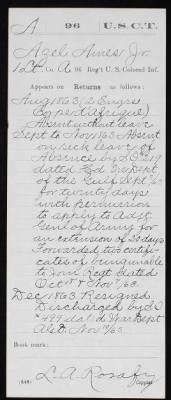 A 96 U.S.C.T.
Azel Ames Jr.
1 Lt. Co. A 96 Reg't U.S. Colored Inf.
Appears on Returns as follows:
Aug 1863 (2 Engrs
Corps d'Afrique)
Absent without leave
Sept to Nov 1863 Absent
on sick leave of
Absence by S.O.
dated Hd Qrs Dept
of the Gulf Sept /63
for twenty days
with permission
to apply to Adjt
Genl of Army for
an extension of 20 days
Forwarded two certifi-
cates of being unable
to join Regt dated
Oct & Nov /63.
Dec 1863 Resigned
Discharged by S.O.
#499 dat'd War Dept
A.G.O. Nov /63
Book mark:
(546)
L. A. Rosafy
Copyist.